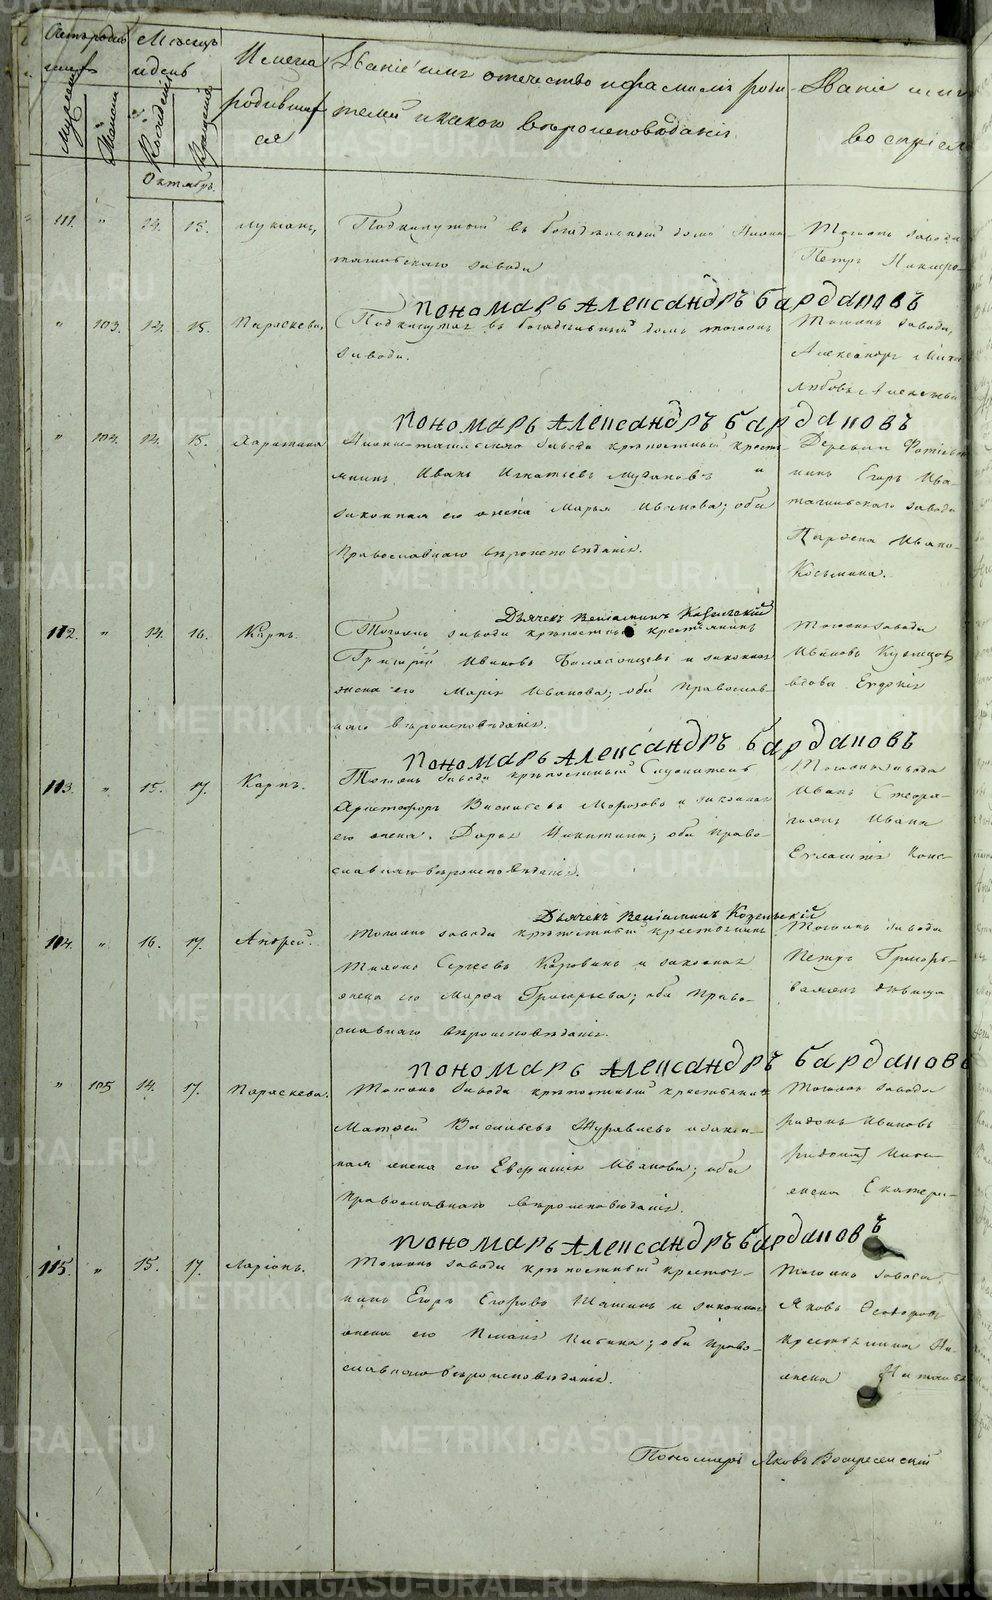 Счетъ родив
шихъ
Мѣсяцъ
и день
Имена
родивших
ся
Званіе имя отечество и фамилія роди
телей и какого вѣроисповѣданія
Званіе имя
воспріем
Мужеска
Женска
Рожденія
Крещенія
Октябрь
111. " 14. 15. Лукіанъ,
Подкинутый въ богадѣльный домъ Нижне
тагильскаго завода
Тогожъ завода
Петръ Никифо-
Пономарь Александръ Бардановъ
" 103. 14. 15. Параскева,
Подкинутая въ богадѣльный домъ тогожъ
завода.
Тогожъ завода,
Александръ
Любовь Алексѣев
Пономарь Александръ Бардановъ
" 104. 14. 15. Харитина
Нижнетагильскаго завода крѣпостный кресть-
янинъ Иванъ Игнатьевъ и
законная его жена Марья Иванова; оба
православнаго вѣроисповѣданія.
Деревни
нинъ Егоръ Ива-
тагильскаго завода
Ивано-
Козьмина.
Дьячекъ Веніаминъ Козельскій
112. " 14. 16. Карпъ.
Тогожъ завода крѣпостный крестьянинъ
Григорій Ивановъ и законная
жена его Марія Иванова; оба православ-
наго вѣроисповѣданія.
Тогожъ завода
Ивановъ Кузнецовъ
вдова Евдокія
Пономарь Александръ Бардановъ
113. " 15. 17. Карпъ.
Тогожъ завода крѣпостный служитель
Христофоръ Васильевъ Морозовъ и законная
его жена Дарья Никитина; оба право-
славнаго вѣроисповѣданія.
Тогожъ завода
Иванъ
Иванъ
Евлампія Конс-
Дьячекъ Веніаминъ Козельскій
114. " 16. 17. Андрей.
Тогожъ завода крѣпостный крестьянинъ
Тихонъ Сергеевъ Коровинъ и законная
жена его Марѳа Григорьева; оба право-
славнаго вѣроисповѣданія.
Тогожъ завода
Петръ Григорь-
дѣвица
Пономарь Александръ Бардановъ
" 105 14. 17. Параскева.
Тогожъ завода крѣпостный крестьянинъ
Матвей Васильевъ Журавлевъ и закон-
ная жена его Евфимія Иванова; оба
православнаго вѣроисповѣданія.
Тогожъ завода
Ивановъ
жена Екатери-
Пономарь Александръ Бардановъ
115. " 15. 17. Ларіонъ.
Тогожъ завода крѣпостный крестья-
нинъ Егоръ Егоровъ Шашинъ и законная
жена его; оба право-
славнаго вѣроисповѣданія.
Тогожъ завода
Яковъ Ѳедоровъ
крестьянина
жена Наталья
Пономарь Яковъ Воскресенскій
METRIKI.GASO-URAL.RU